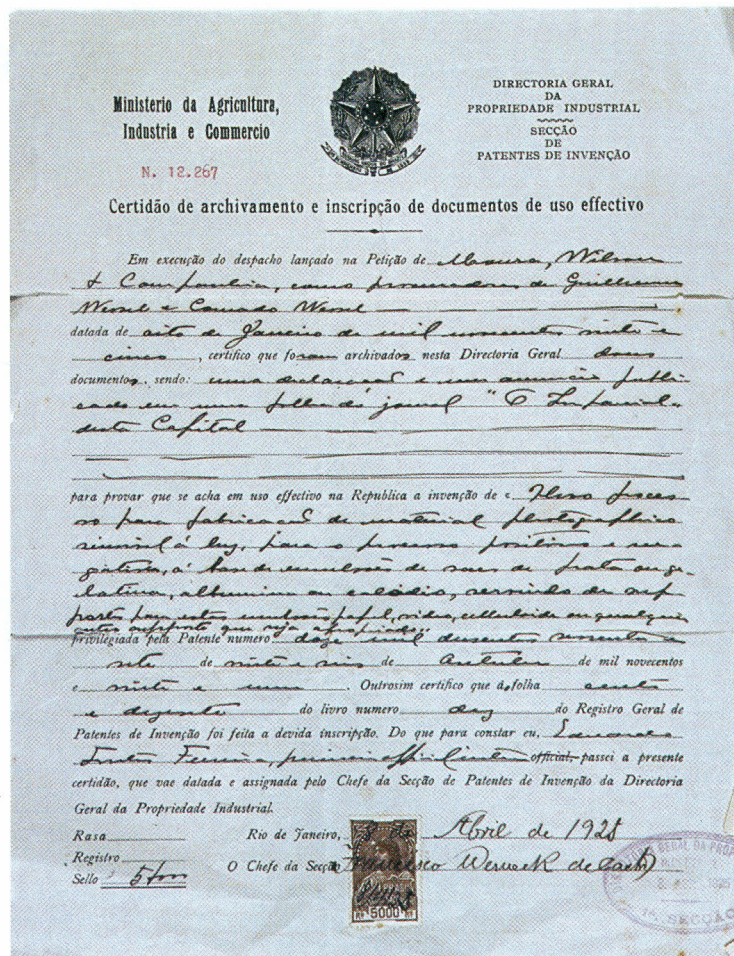 Ministerio da Agricultura,
Industria e Commercio
N. 12.267
DIRECTORIA GERAL
DA
PROPRIEDADE INDUSTRIAL
SECÇÃO
DE
PATENTES DE INVENÇÃO
Certidão de archivamento e inscripção de documentos de uso effectivo
Em execução do despacho lançado na Petição de Moura, Wilson
& Companhia, como procuradores de Guilherme
Wessel e Conrado Wessel
datada de oito de Janeiro de mil novecentos vinte e
cinco, certifico que foram archivados nesta Directoria Geral dous
documentos, sendo: uma declaração e um annuncio publi
cado em uma folha do jornal "O Imparcial"
desta Capital
para provar que se acha em uso effectivo na Republica a invenção de « Novo proces
so para fabricação de material photographico
sensivel á luz, para o processo positivo e ne
gativo, á base de emulsão de saes de prata ou ge
latina, albumina ou colodio, servindo de sup
porte para estas emulsões papel, vidro, celluloide ou qualquer
outro supporte que seja apropriado»
privilegiada pela Patente numero doze mil duzentos sessenta e
sete de vinte e seis de Outubro de mil novecentos
e vinte e um. Outrosim certifico que á folha cento
e do livro numero dez do Registro Geral de
Patentes de Invenção foi feita a devida inscripção. Do que para constar eu, Eduardo
Ferreira, primeiro official, passei a presente
certidão, que vae datada e assignada pelo Chefe da Secção de Patentes de Invenção da Directoria
Geral da Propriedade Industrial.
Rasa
Rio de Janeiro, 8 de Abril de 1925
Registro
O Chefe da Secção Francisco Werneck de
Sello
BRASIL
Rs 5000 Rs
1ª SECÇÃO